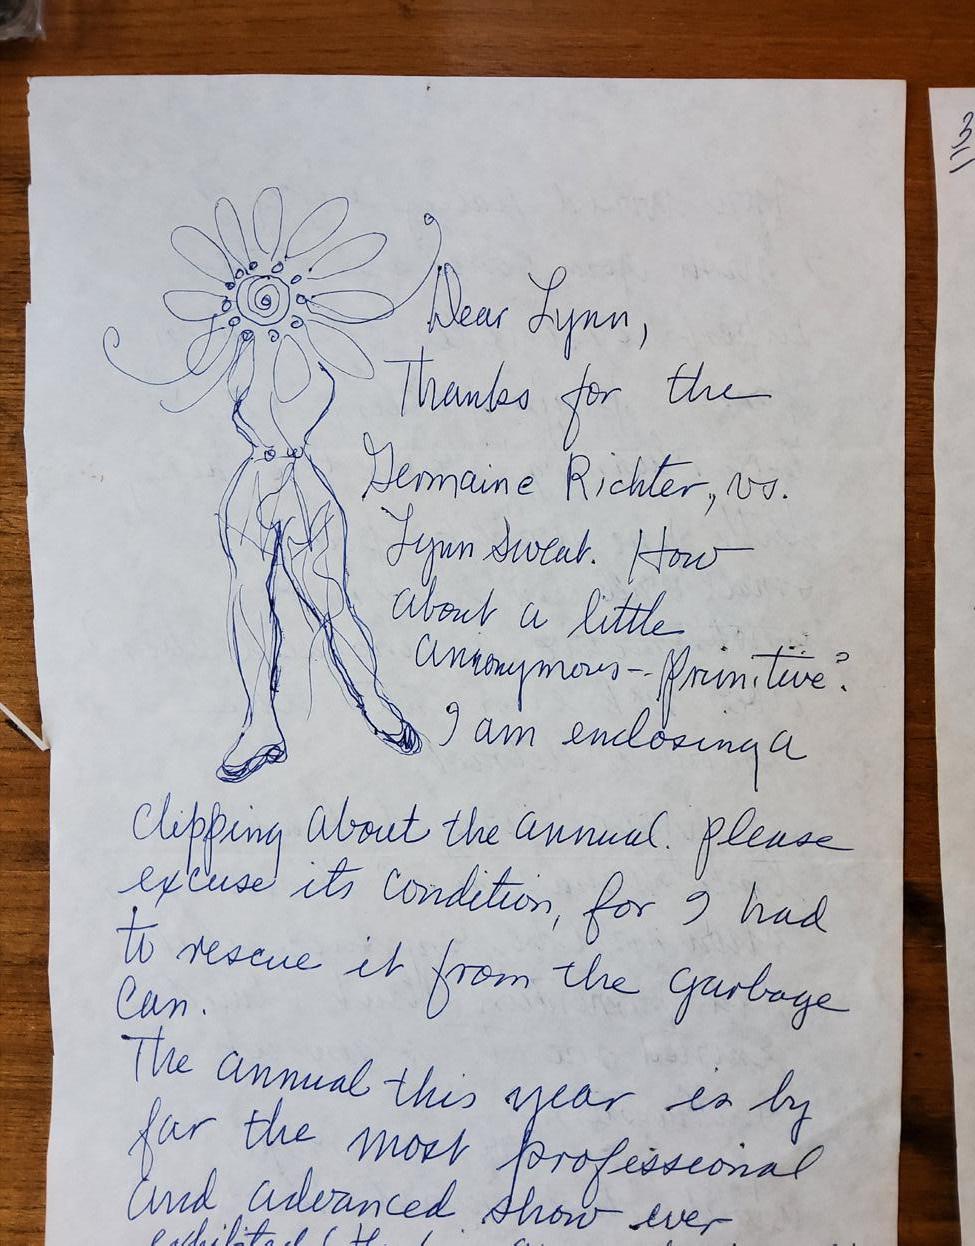 Dear Lynn,
Thanks for the
Germaine Richter, vs.
Lynn Sweat. How
about a little
annonymous-primitive?
I am enclosing a
clipping about the annual. please
excuse its condition, for I had
to rescue it from the garbage
can.
The annual this year is by
far the most professional
and advanced show ever
exhibited
3